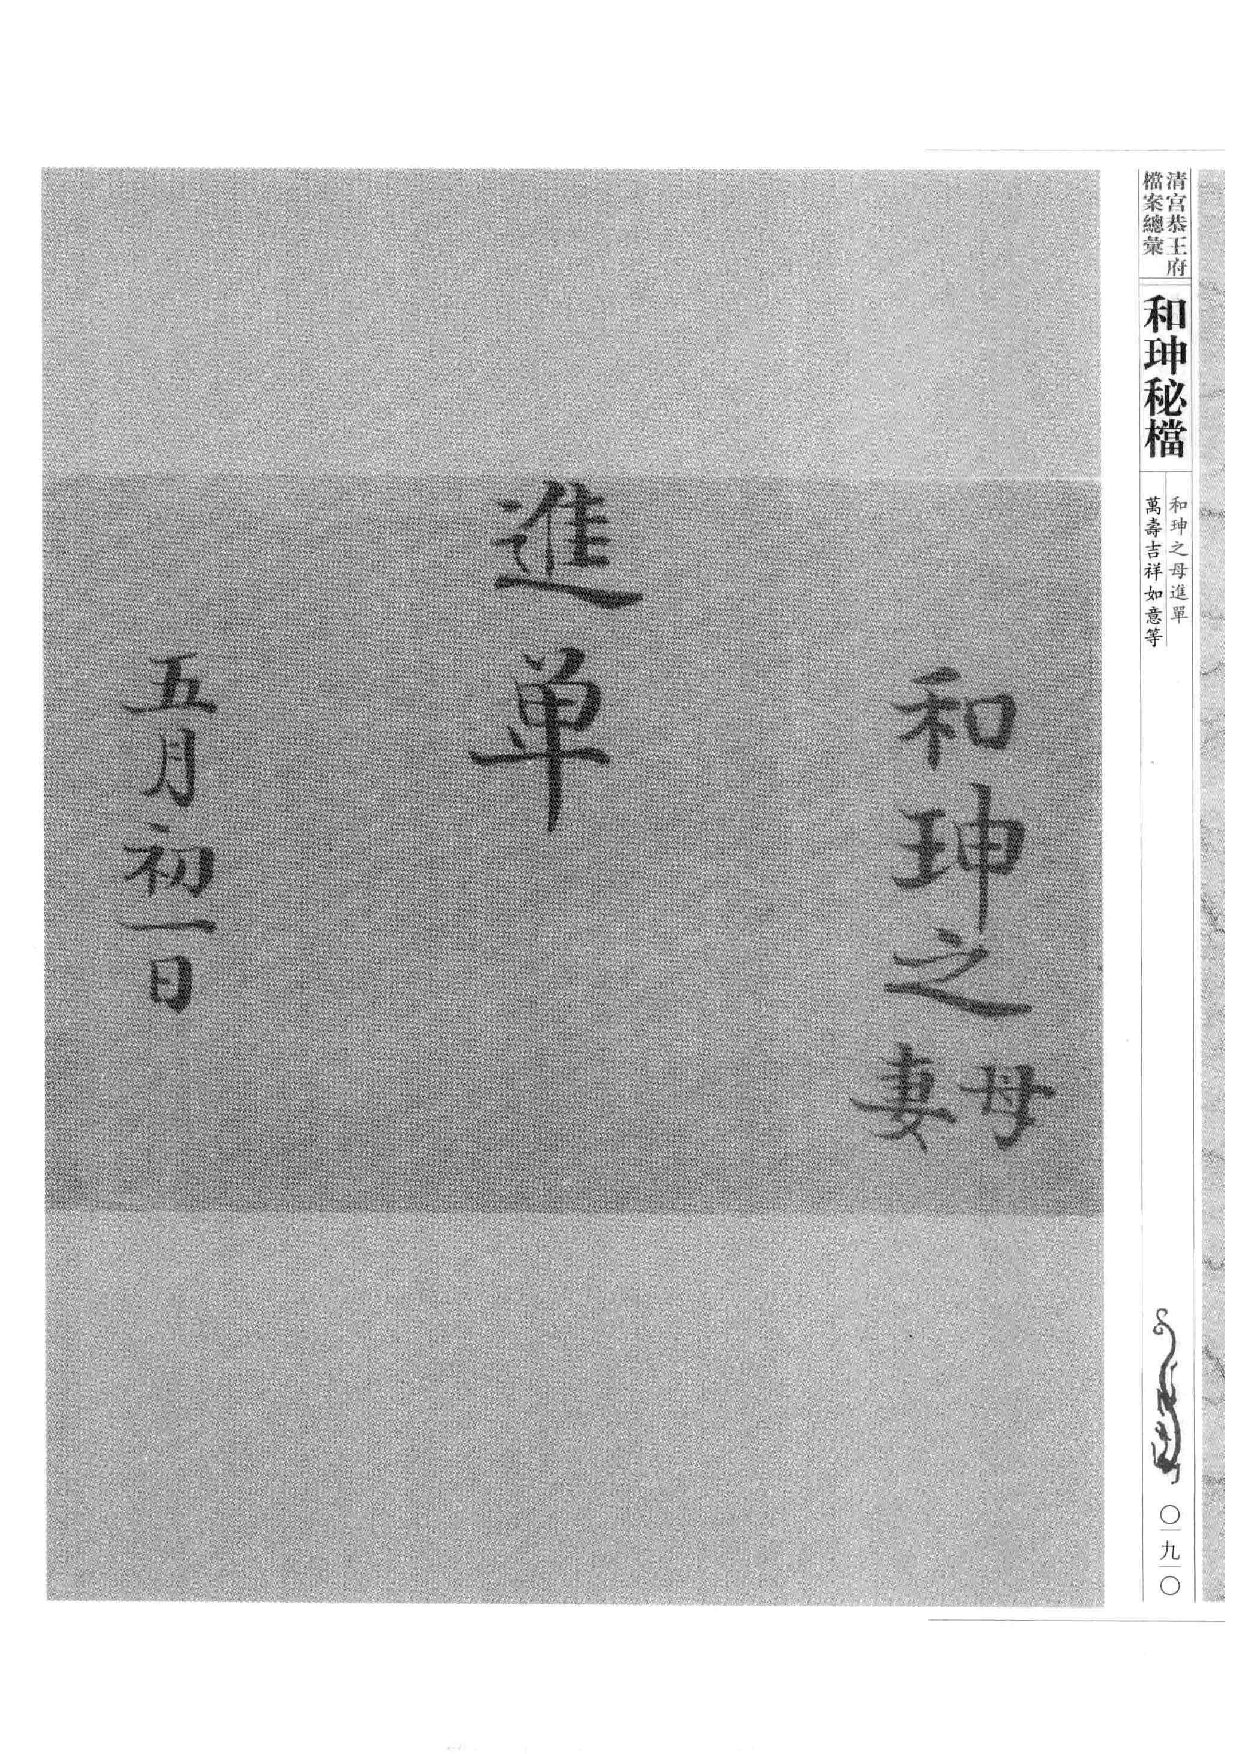 清宫恭王府
檔案總彙
和珅秘檔
和珅之母進單
萬壽吉祥如意等
〇九〇
和珅之母妻
進单
五月初一日